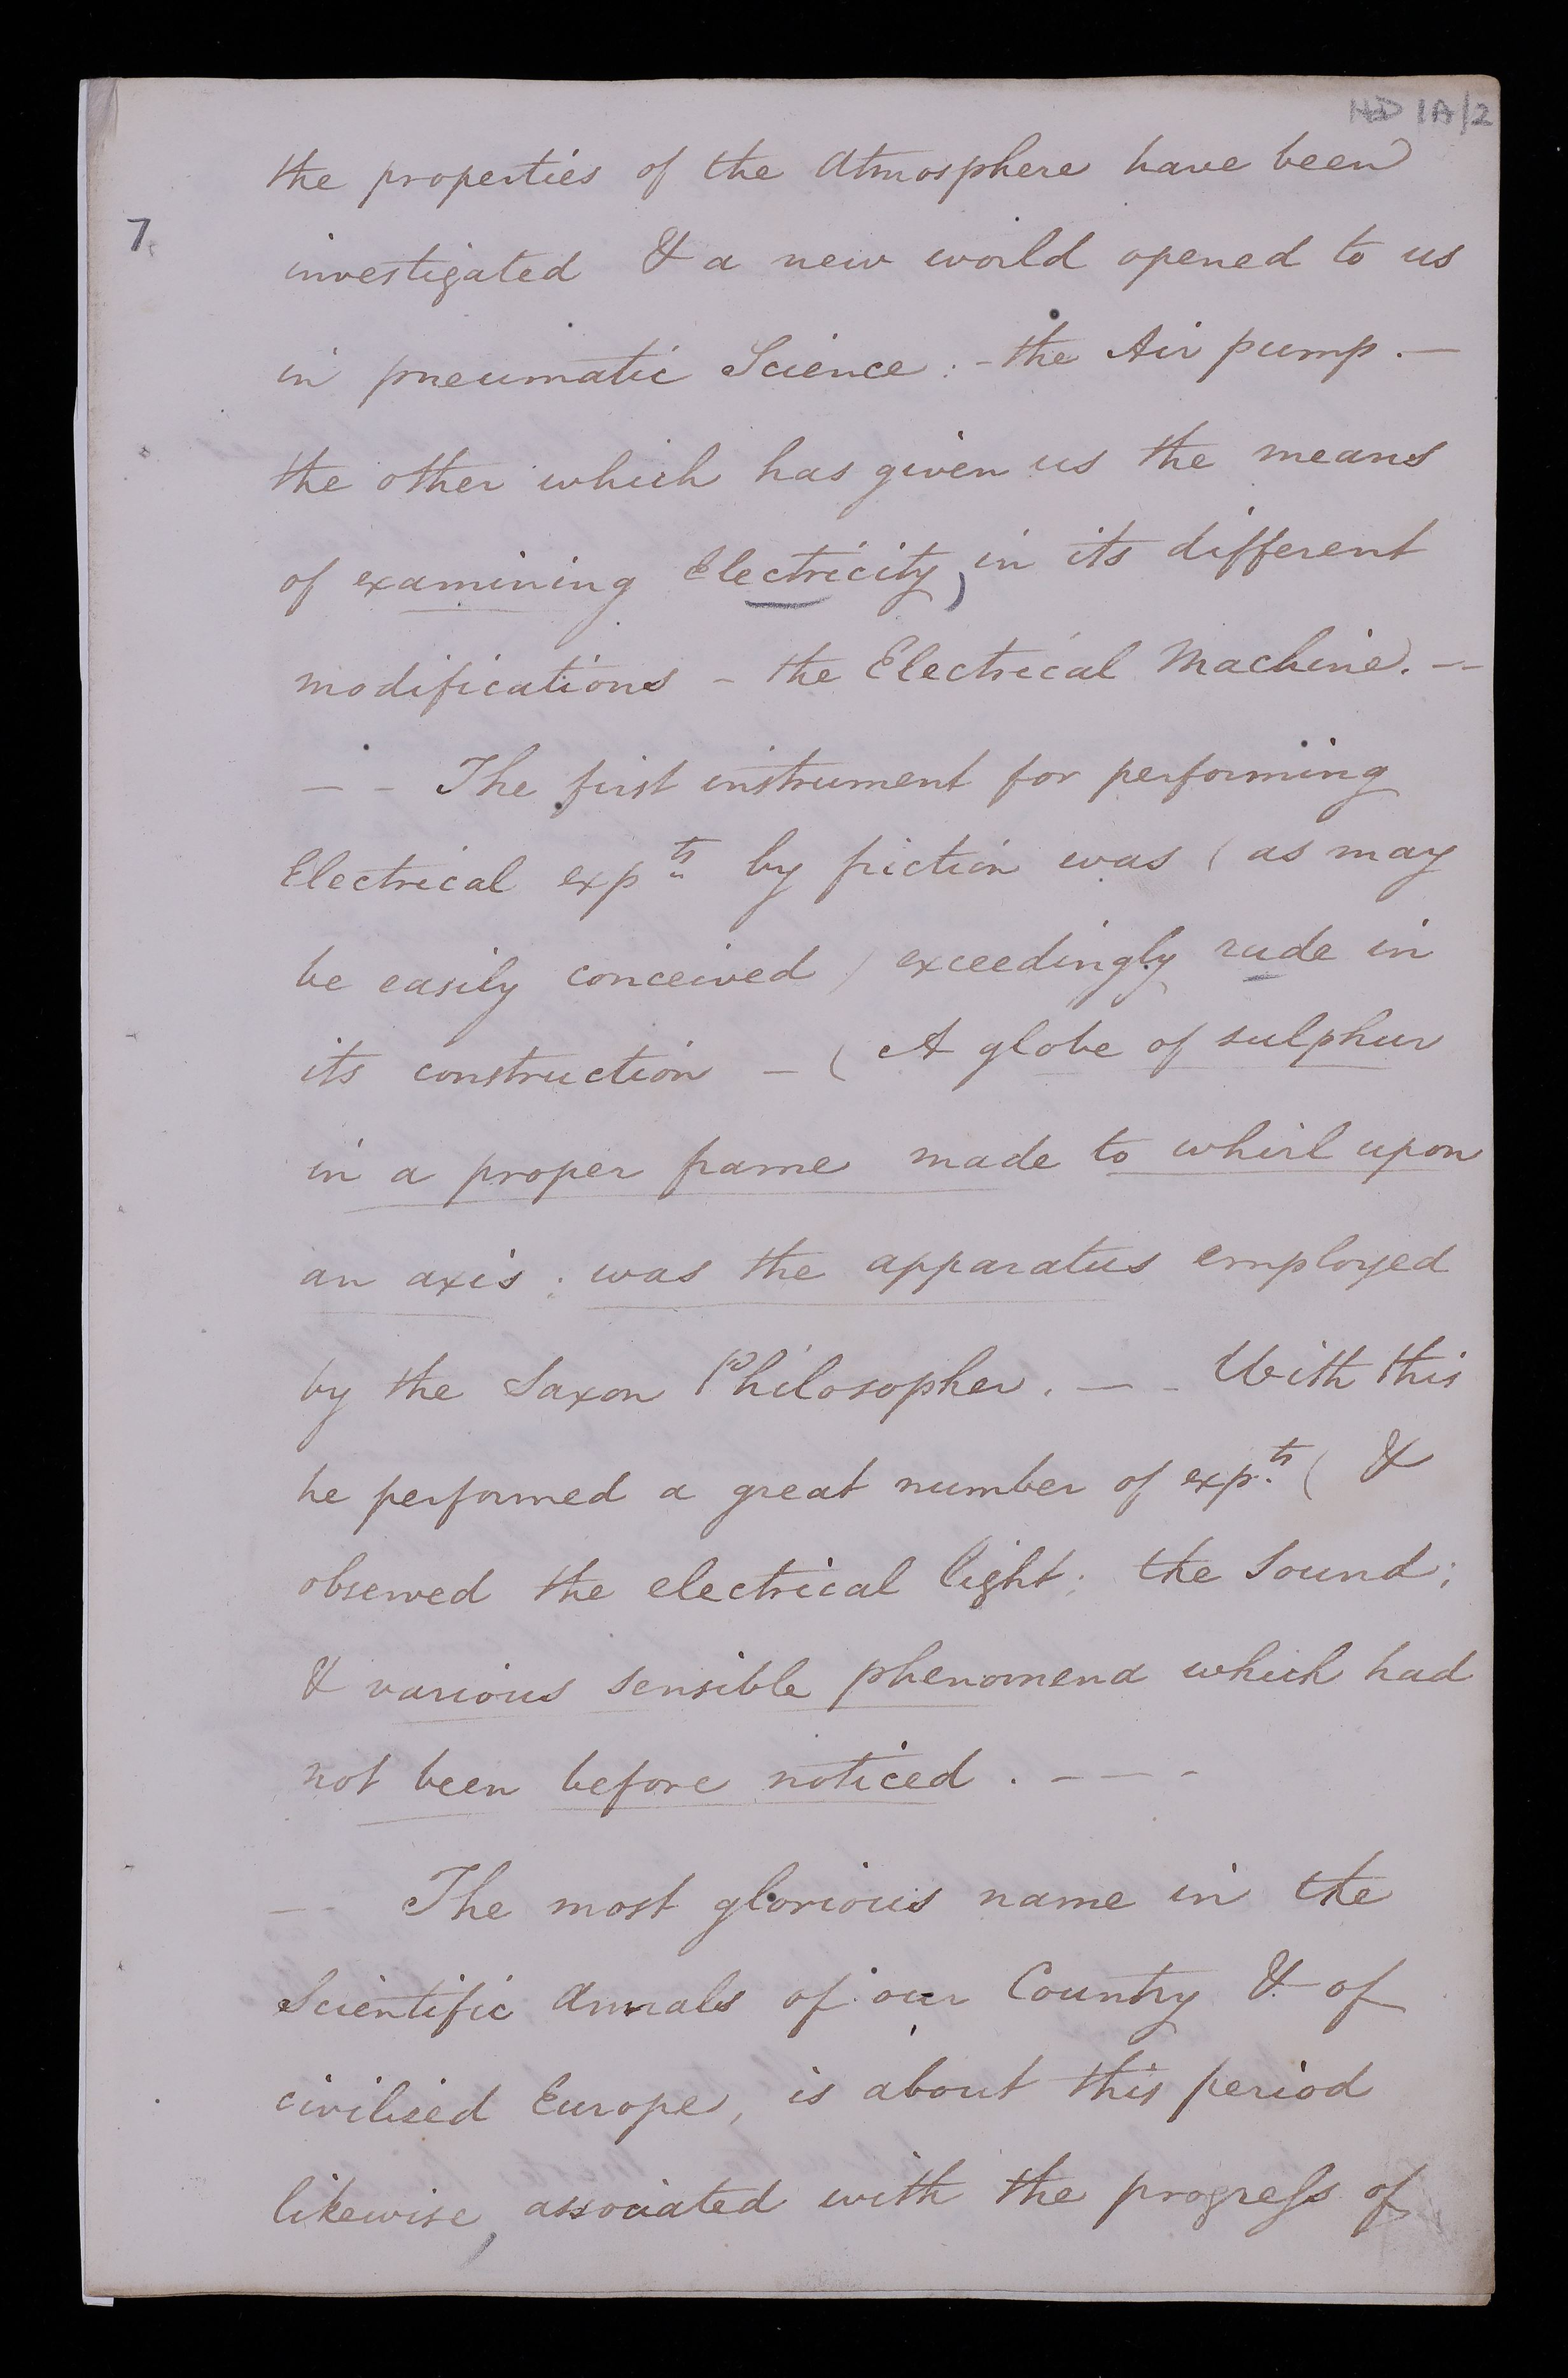 HD 1A/2
the properties of the Atmosphere have been
7.
investigated & a new world opened to us
in pneumatic Science: - the Air pump. —
the other which has given us the means
of examining Electricity, in its different
modifications - the Electrical Machine. --
-- The first instrument for performing
Electrical expts by friction was (as may
be easily conceived) exceedingly rude in
its construction - (A globe of sulphur
in a proper frame made to whirl upon
an axis; was the apparatus employed
by the Saxon Philosopher. — - With this
he performed a great number of expts (&
observed the electrical light; the Sound;
& various sensible phenomena which had
not been before noticed. ---
-- The most glorious name in the
Scientific Annals of our Country & of
civilized Europe, is about this period
likewise, associated with the progress of